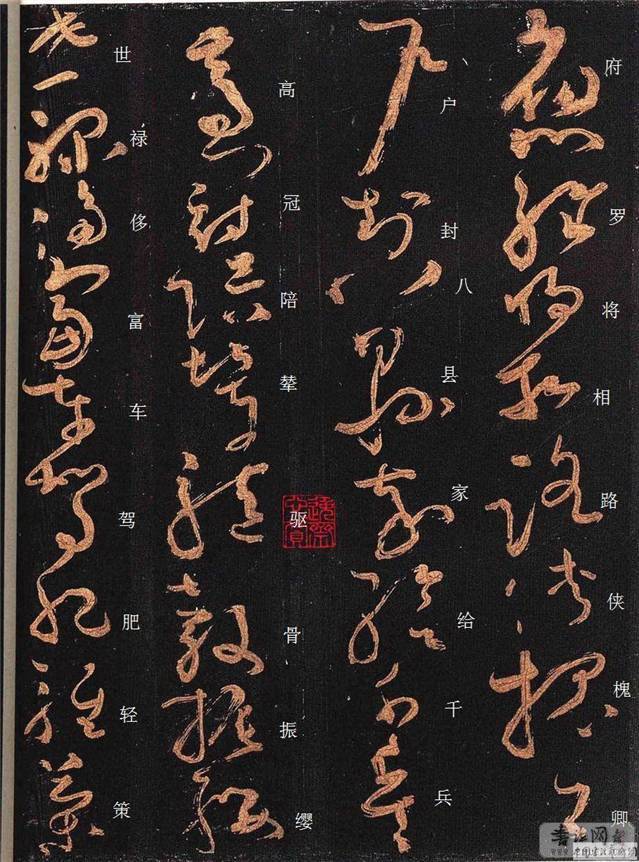 府罗将相路侠槐卿
户封八县家给千兵
高冠陪辇驱骨振缨
世禄侈富车驾肥轻策
书法网